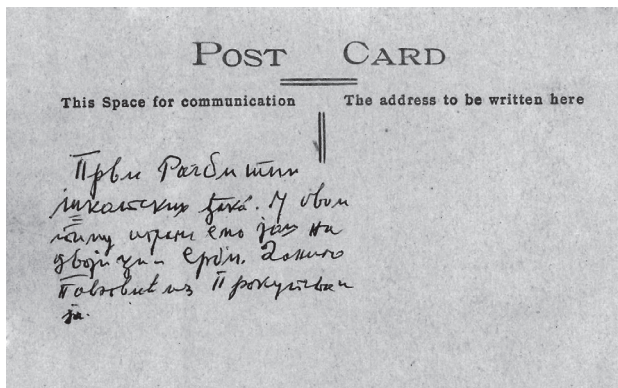 POST CARD
This Space for communication The address to be written here
Први Рагби тим
шкотских ђака. У овом
тиму играли смо на
двојица Срби.
Павловић из Прокупља и
ја.